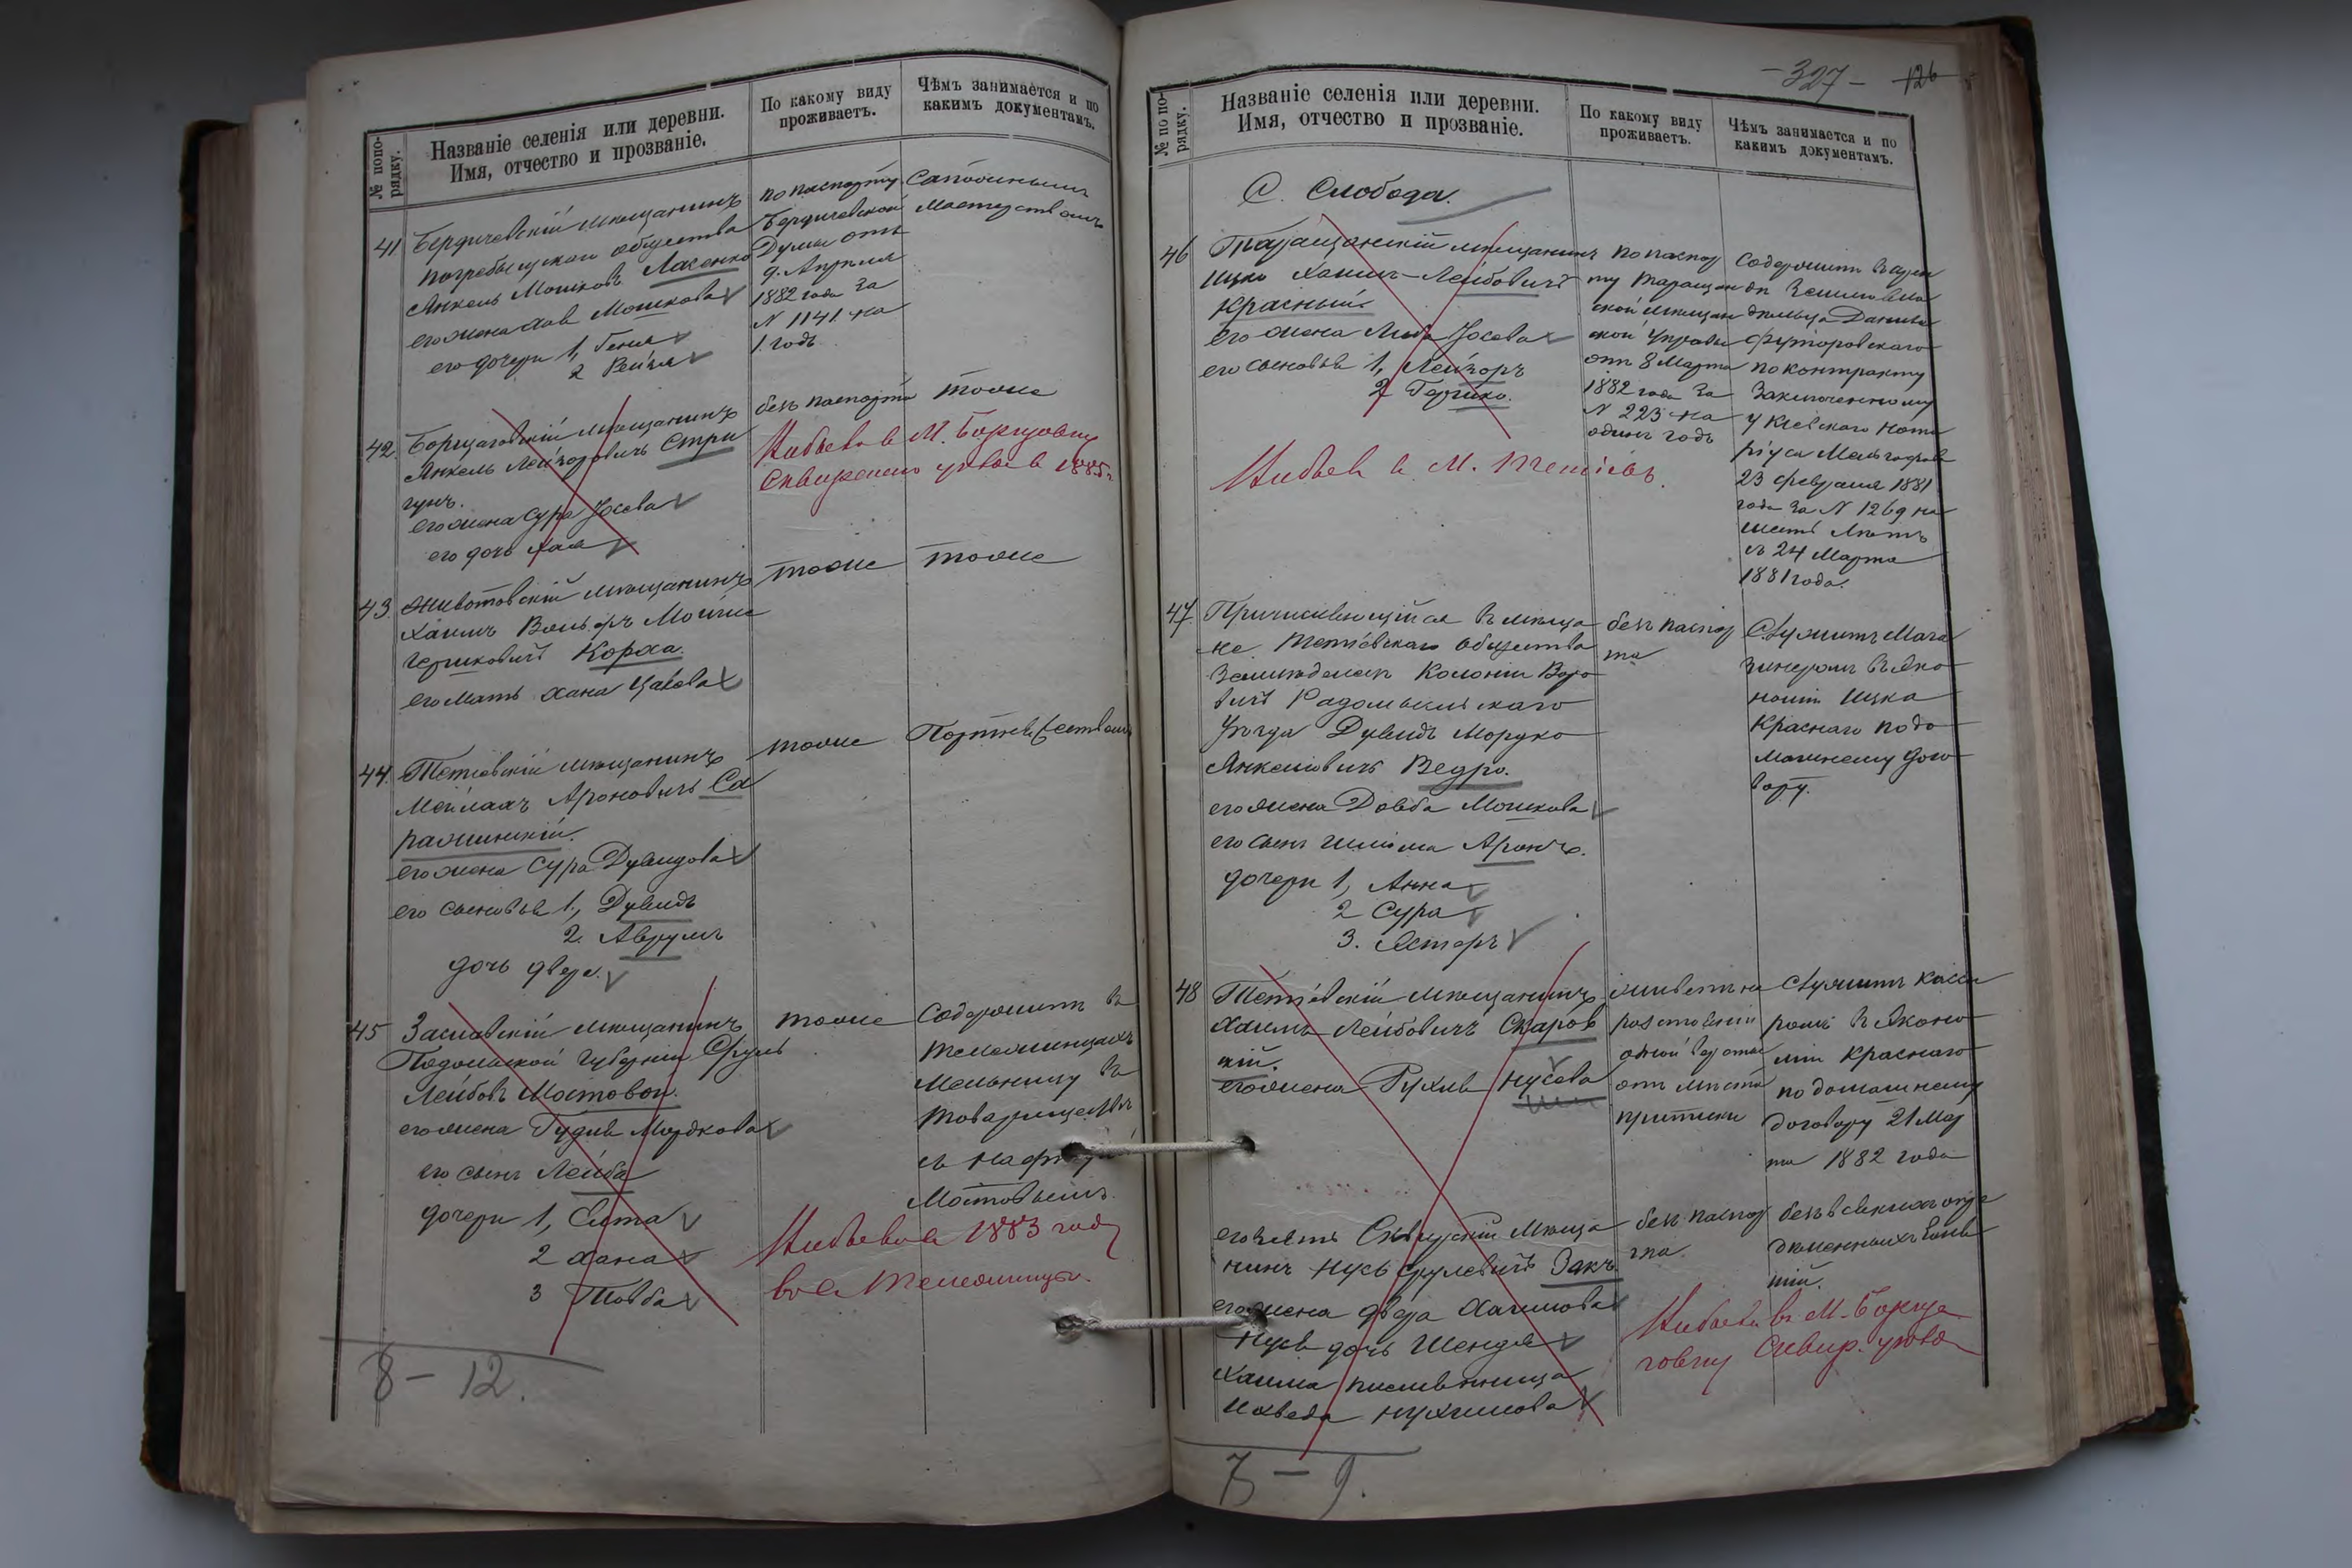 № попо-
рядку.
Названіе селенія или деревни.
Имя, отчество и прозваніе.
По какому виду
проживаетъ.
Чѣмъ занимается и по
какимъ документамъ.
41
Бердичевскій мѣщанинъ
погребыщскаго общества
Янкель Мошковъ Лясенко
его жена Хая Мошкова
его дочери 1, Геня
2 Рейзя
по паспорту
Бердичевской
Думы отъ
9. Апрѣля
1882 года за
N 1141. на
1. годъ
Сапожнымъ
мастерствомъ
42.
Борщаговскій мѣщанинъ
Янкель Лейзоровичъ Стри
гунъ.
его жена Сура Іосева
его дочь Хая
безъ паспорта
тоже
Выбылъ в М. Борщовку
Сквирскаго уѣзда в 1885 г
43.
Животовскій мѣщанинъ
Хаимъ Вольфъ Мойше
Гершковичъ Корха.
его мать Хана Ицкова
тоже
тоже
44.
Тетіевскій мѣщанинъ
Мейлахъ Ароновичъ Са
ражинскій.
его жена Сура Дувидова
его сыновья 1., Дувидъ
2. Аврумъ
дочь Двера.
тоже
Портняжествомъ
45
Заславскій мѣщанинъ
Подольской Губерніи Сруль
Лейбовъ Мостовой.
его жена Гудля Мордкова
его сынъ Лейба
дочери 1, Сита
2 Хана
3 Товба
тоже
Содержитъ въ
Тележинцахъ
Мельницу въ
товариществѣ
съ
Мостовымъ.
Выбылъ в 1883 году
въ с Тележинцы.
8 – 12.
– 327 –
126
№ по по-
рядку.
Названіе селенія или деревни.
Имя, отчество и прозваніе.
По какому виду
проживаетъ.
Чѣмъ занимается и по
какимъ документамъ.
С. Слобода.
46
Таращанскій мѣщанинъ
Ицко Хаимъ-Лейбовичъ
Красный
его жена Либа Іосева
его сыновья 1, Лейзоръ
2 Гершко.
по паспор
ту Таращан
ской мѣщан
ской Управы
отъ 8 Марта
1882 года за
N 223 на
одинъ годъ
Содержитъ въ арен
дѣ Землевла
дѣльца Данила
Футоровскаго
по контракту
Заключенному
у Кіевскаго Нота
ріуса
23 февраля 1881
года за N 1269 на
шесть лѣтъ
съ 24 Марта
1881 года.
Выбылъ в М. Тетіевъ.
47
Причисляющійся въ мѣща
не Тетіевскаго общества
Земледѣлецъ Колоніи Воро
вичъ Радомысльскаго
Уѣзда Дувидъ Мордко
Янкелевичъ Ведро.
его жена Довба Мошкова
его сынъ Шлёма Аронъ.
дочери 1, Анна
2 Сура
3. Эстеръ
безъ паспор
та
Служитъ Мага
зинеромъ въ Эко
номіи Ицка
Краснаго по до
машнему дого
вору.
48
Тетіевскій мѣщанинъ
Хаимъ Лейбовичъ Скаров
кій.
его жена Рухля Нусева
живетъ на
разстояніи
одной версты
отъ мѣста
приписки
Служитъ Касси
ромъ въ Эконо
міи Краснаго
по домашнему
договору 21 Мар
та 1882 года
его зять Сквирскій Мѣща
нинъ Нусь Срулевичъ Закъ.
его жена Двера Хаимова
Нуся дочь Шендля
Хаима племянница
Ихведа Нухимова
безъ паспор
та
безъ всякихъ опре
дѣленныхъ Заня
тій.
Выбылъ въ М. Борща
говку Сквир. уѣзда
7 – 9.